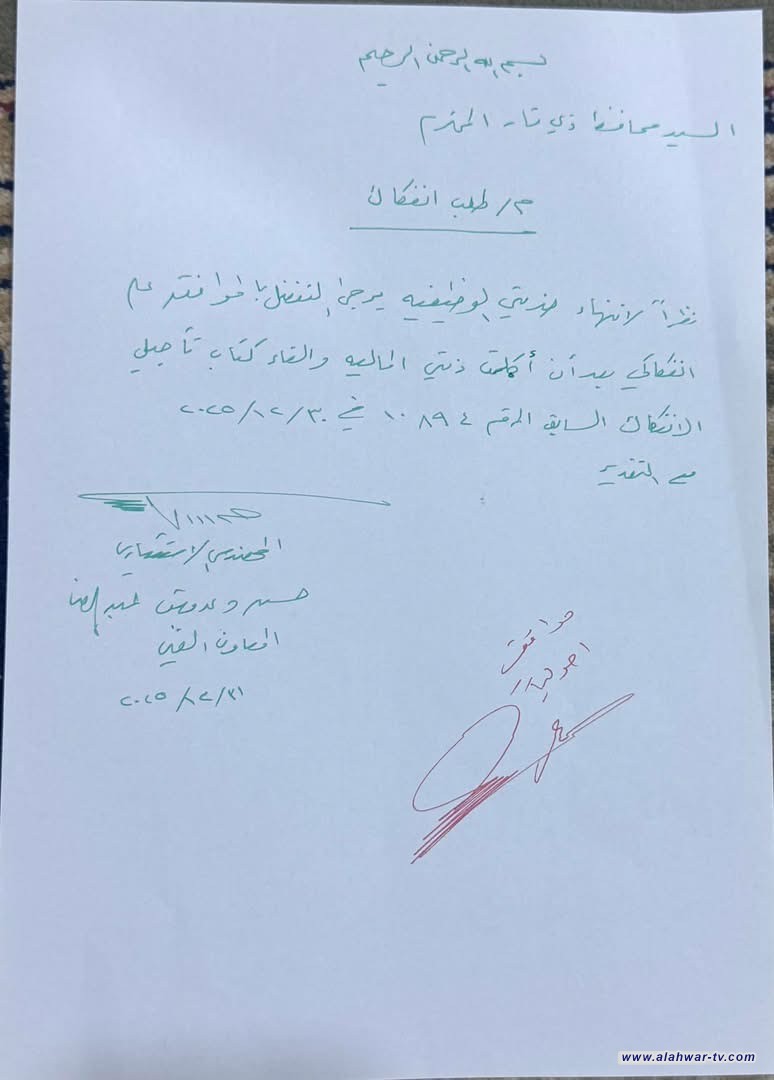 بسم الله الرحمن الرحيم
السيد محافظ ذي قار المحترم
م/ طلب انفكاك
نظراً لانتهاء خدمتي الوظيفيه يرجى التفضل بالموافقه على
انفكاكي بعد أن أكملت ذمتي الماليه والغاء كتاب تأجيل
الانفكاك السابق المرقم ١٠٨٩٤ في ٢٠٢٥/١٢/٣٠
مع التقدير
المهندس الاستشاري
حسين
المعاون الفني
٢٠٢٥/١٢/٣١
موافق
اصولياً
www.alahwar-tv.com